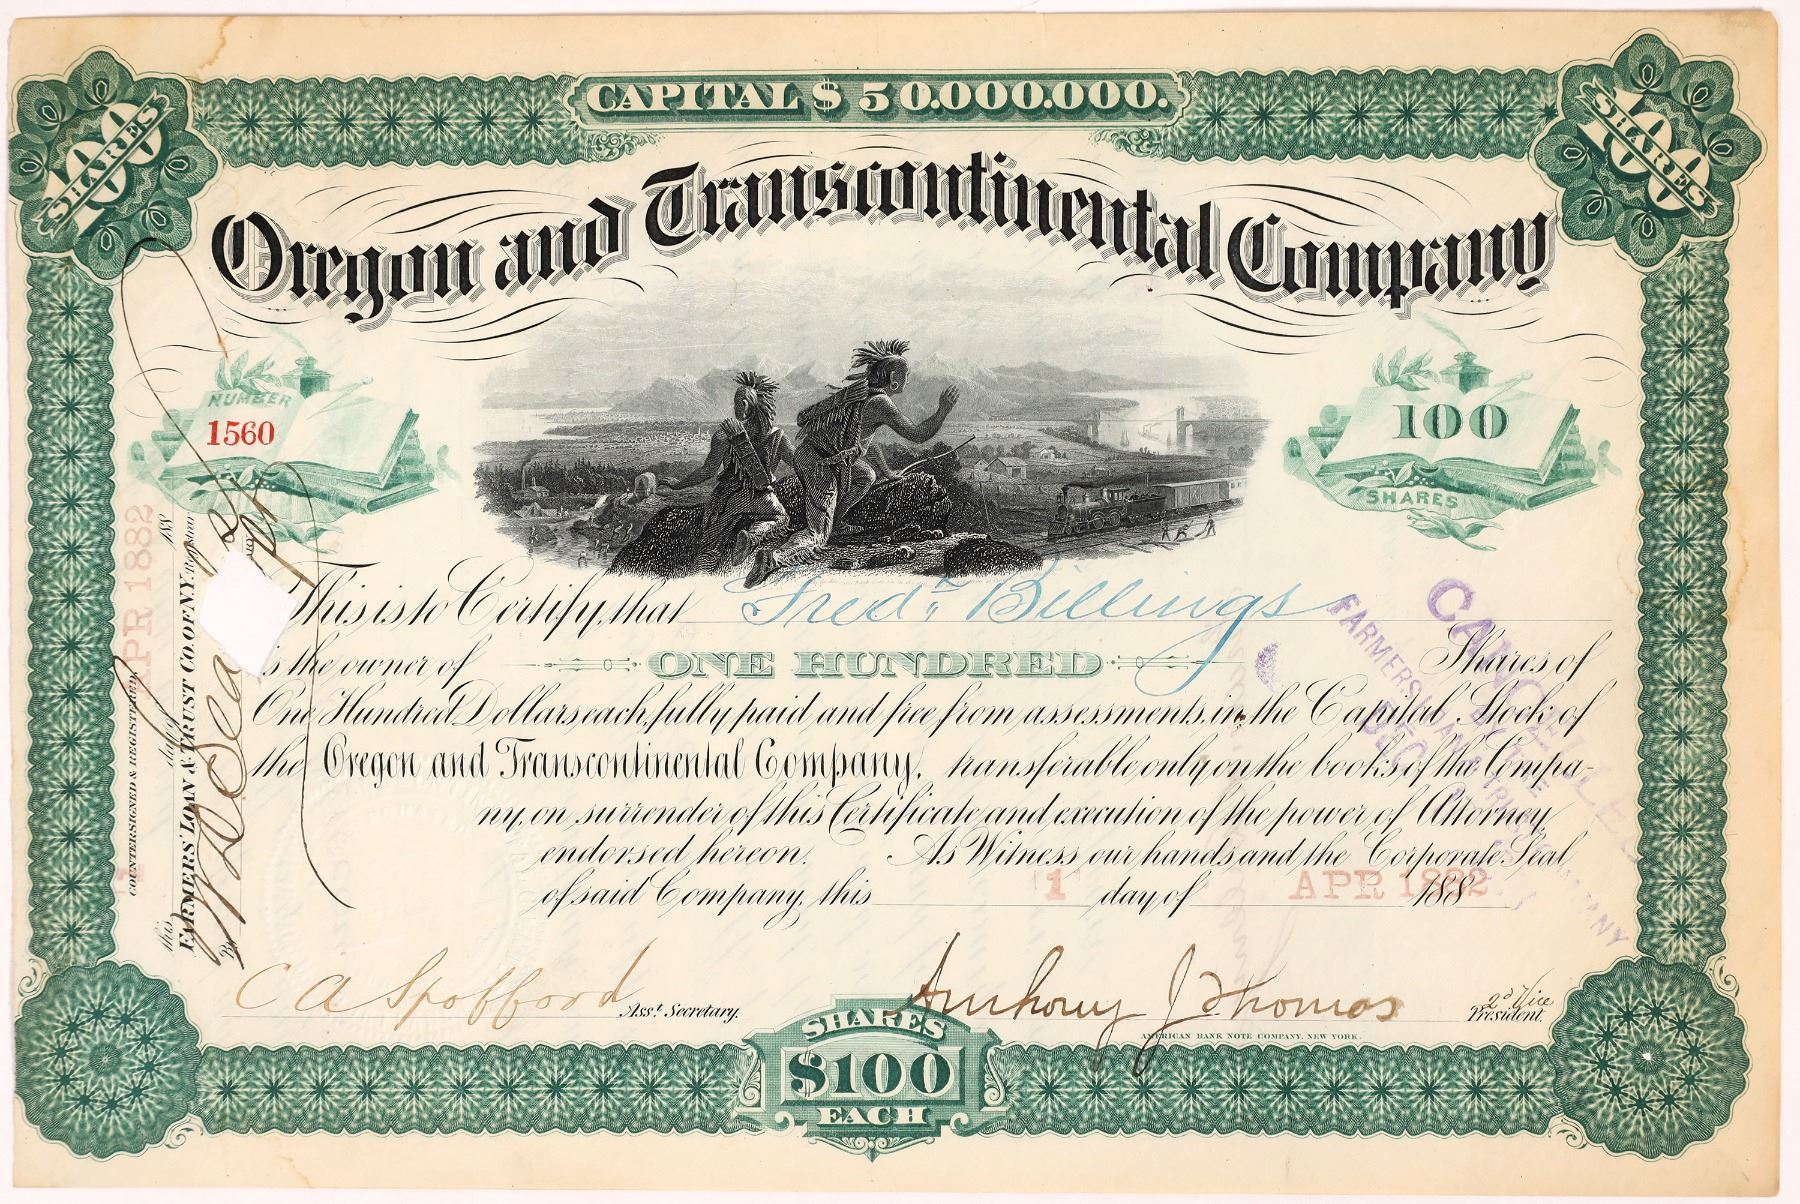 CAPITAL $50.000.000.
100 SHARES
100 SHARES
Oregon and Transcontinental Company
NUMBER
1560
100
SHARES
This is to Certify, that Fred.k Billings
is the owner of ONE HUNDRED Shares of
One Hundred Dollars each, fully paid and free from assessments, in the Capital Stock of
the Oregon and Transcontinental Company, transferable only on the books of the Compa-
ny, on surrender of this Certificate and execution of the power of Attorney
endorsed hereon. As Witness our hands and the Corporate Seal
of said Company, this 1 day of APR 1882 188
C A Spofford Asst. Secretary.
Anthony J. Thomas 2d Vice President.
AMERICAN BANK NOTE COMPANY, NEW YORK.
SHARES
$100
EACH
COUNTERSIGNED & REGISTERED,
this 1 day of APR 1882 188
FARMERS' LOAN & TRUST CO. OF N.Y. Registrar
By
CANCELLED
FARMERS LOAN